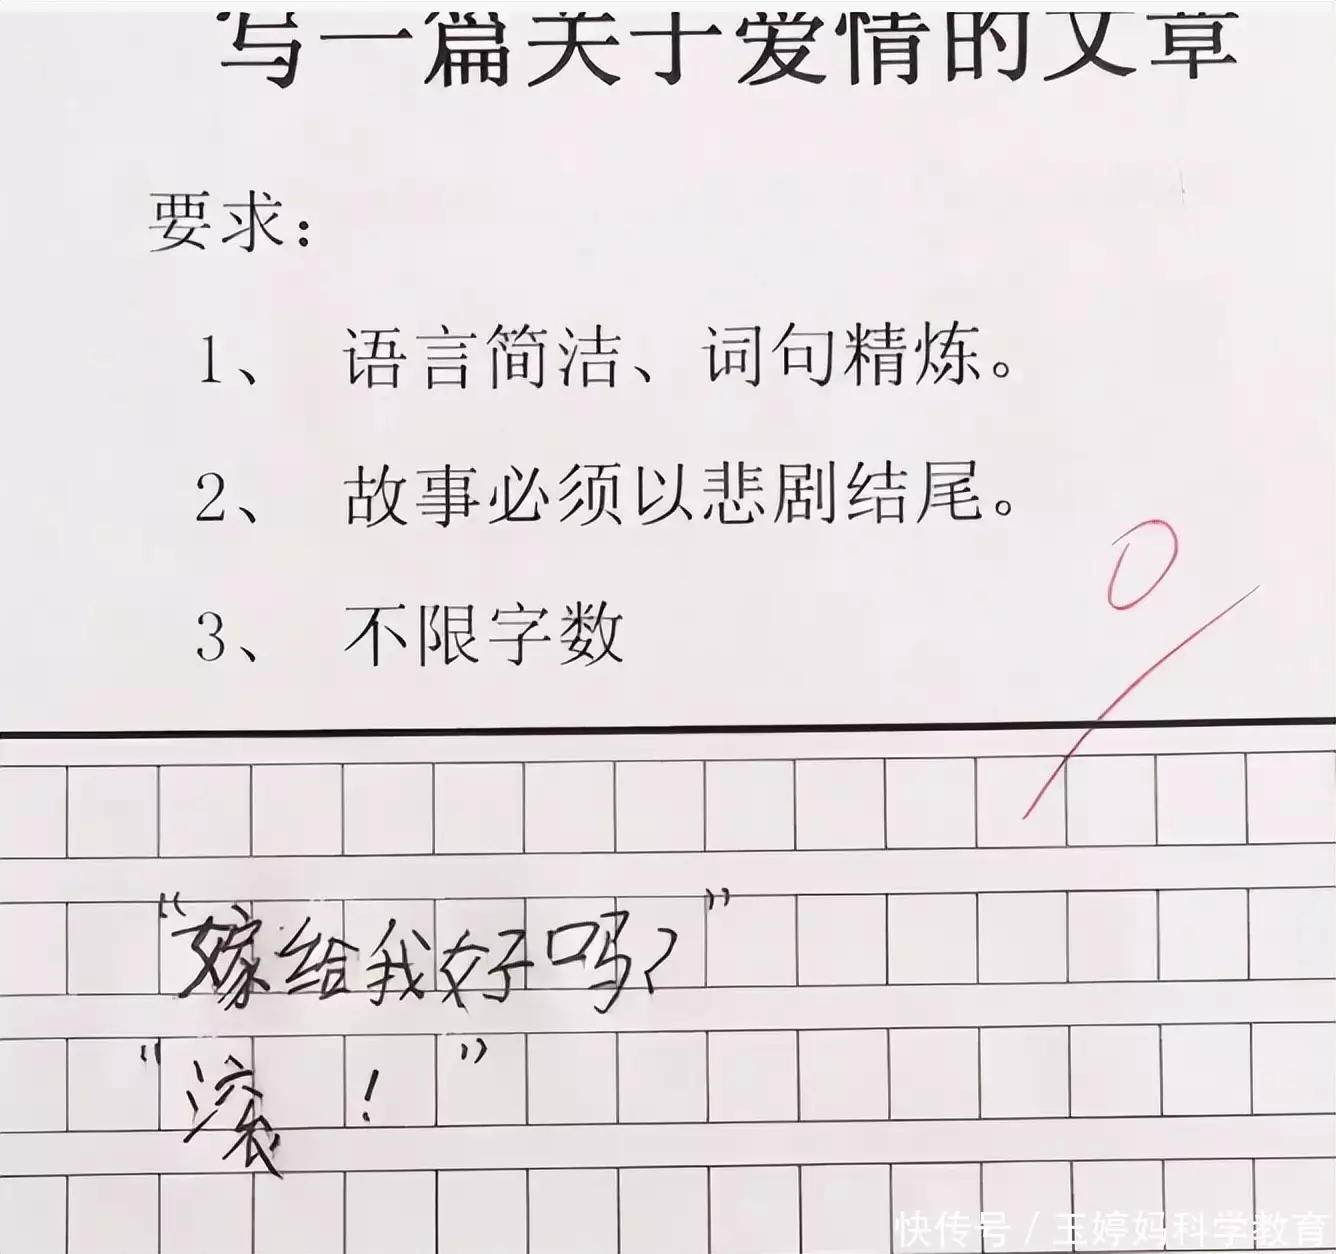 写一篇关于爱情的文章
要求：
1、 语言简洁、词句精炼。
2、 故事必须以悲剧结尾。
3、 不限字数
0
“嫁给我好吗？”
“滚！”
快传号 / 玉婷妈科学教育